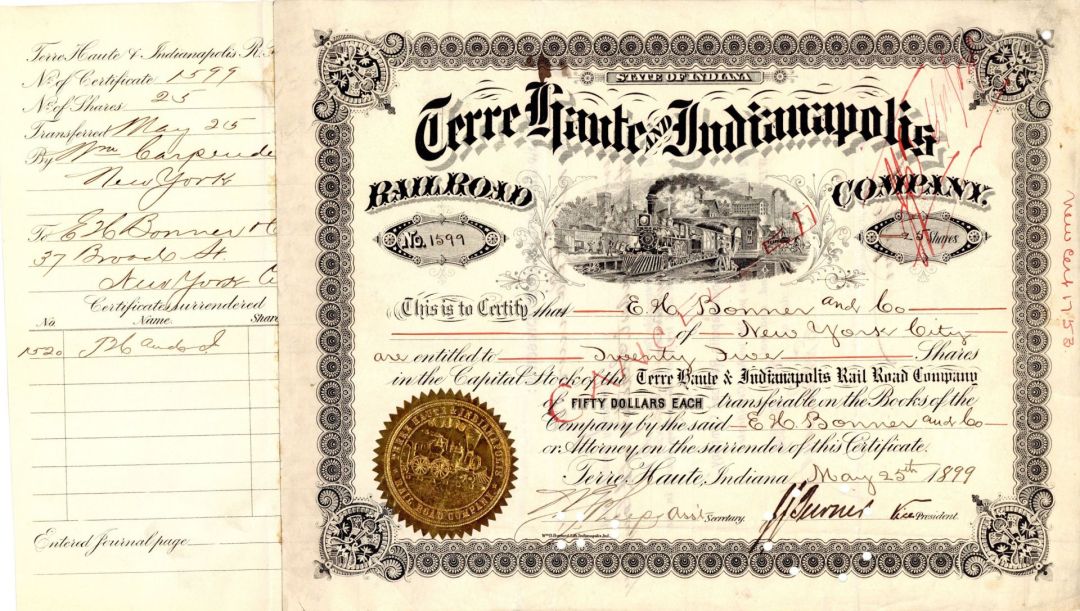 Terre Haute & Indianapolis R.
No. of Certificate 1599
No. of Shares 25
Transferred May 25
By Wm Carpende
New York
To E H Bonner & C
37 Broad St.
New York C
Certificates surrendered
No. Name. Shar
1520
Entered Journal page
STATE OF INDIANA
Terre Haute AND Indianapolis
RAILROAD COMPANY.
No. 1599
25 Shares
This is to Certify that E. H. Bonner and Co
of New York City
are entitled to Twenty Five Shares
in the Capital Stock of the Terre Haute & Indianapolis Rail Road Company
of FIFTY DOLLARS EACH transferable on the Books of the
Company by the said E H. Bonner and Co
or Attorney, on the surrender of this Certificate.
Terre Haute, Indiana May 25th 1899
Asst Secretary.
J J Turner Vice President.
TERRE HAUTE & INDIANAPOLIS
RAIL ROAD COMPANY
CANCELLED
New Cert 1753.